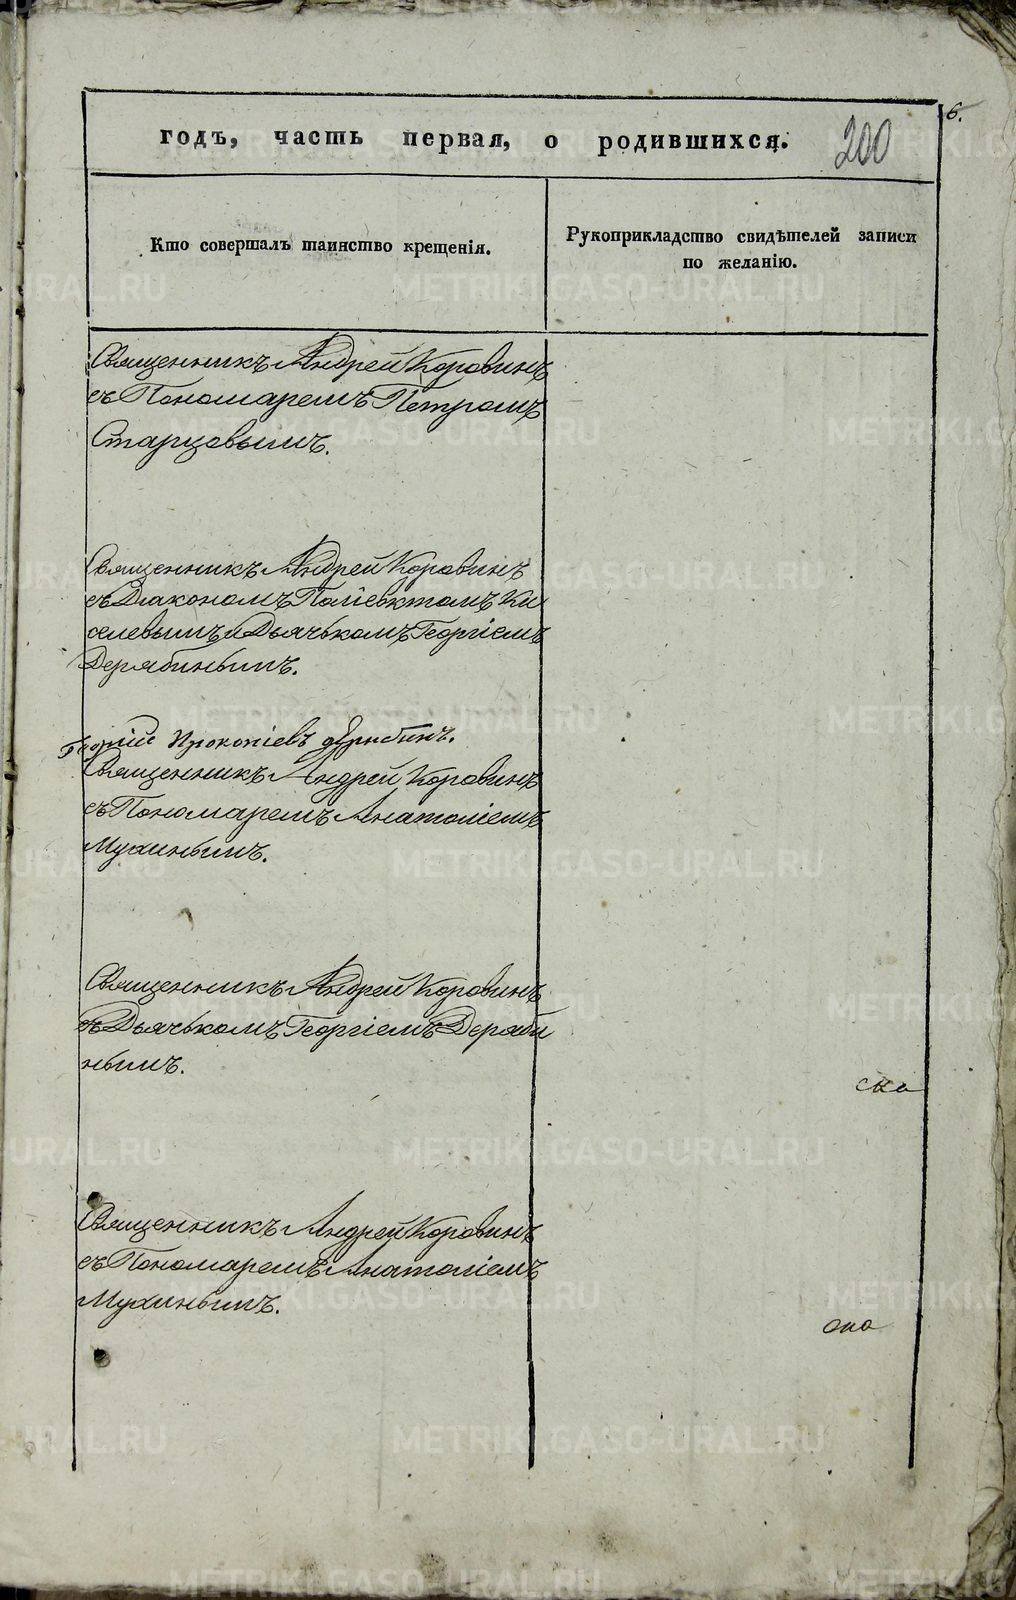 6.
годъ, часть первая, о родившихся. 200
Кто совершалъ таинство крещенія.
Рукоприкладство свидѣтелей записи
по желанію.
Священникъ Андрей Коровинъ
съ Пономаремъ Петромъ
Старцовымъ.
Священникъ Андрей Коровинъ
съ Діакономъ Поліевктомъ Ки
селевымъ и Дьячькомъ Георгіемъ
Дерябинымъ.
Георгій Прокопіевъ Дерябинъ.
Священникъ Андрей Коровинъ
съ Пономаремъ Анатоліемъ
Мухинымъ.
Священникъ Андрей Коровинъ
съ Дьячькомъ Георгіемъ Деряби
нымъ.
Священникъ Андрей Коровинъ
съ Пономаремъ Анатоліемъ
Мухинымъ.
METRIKI.GASO-URAL.RU